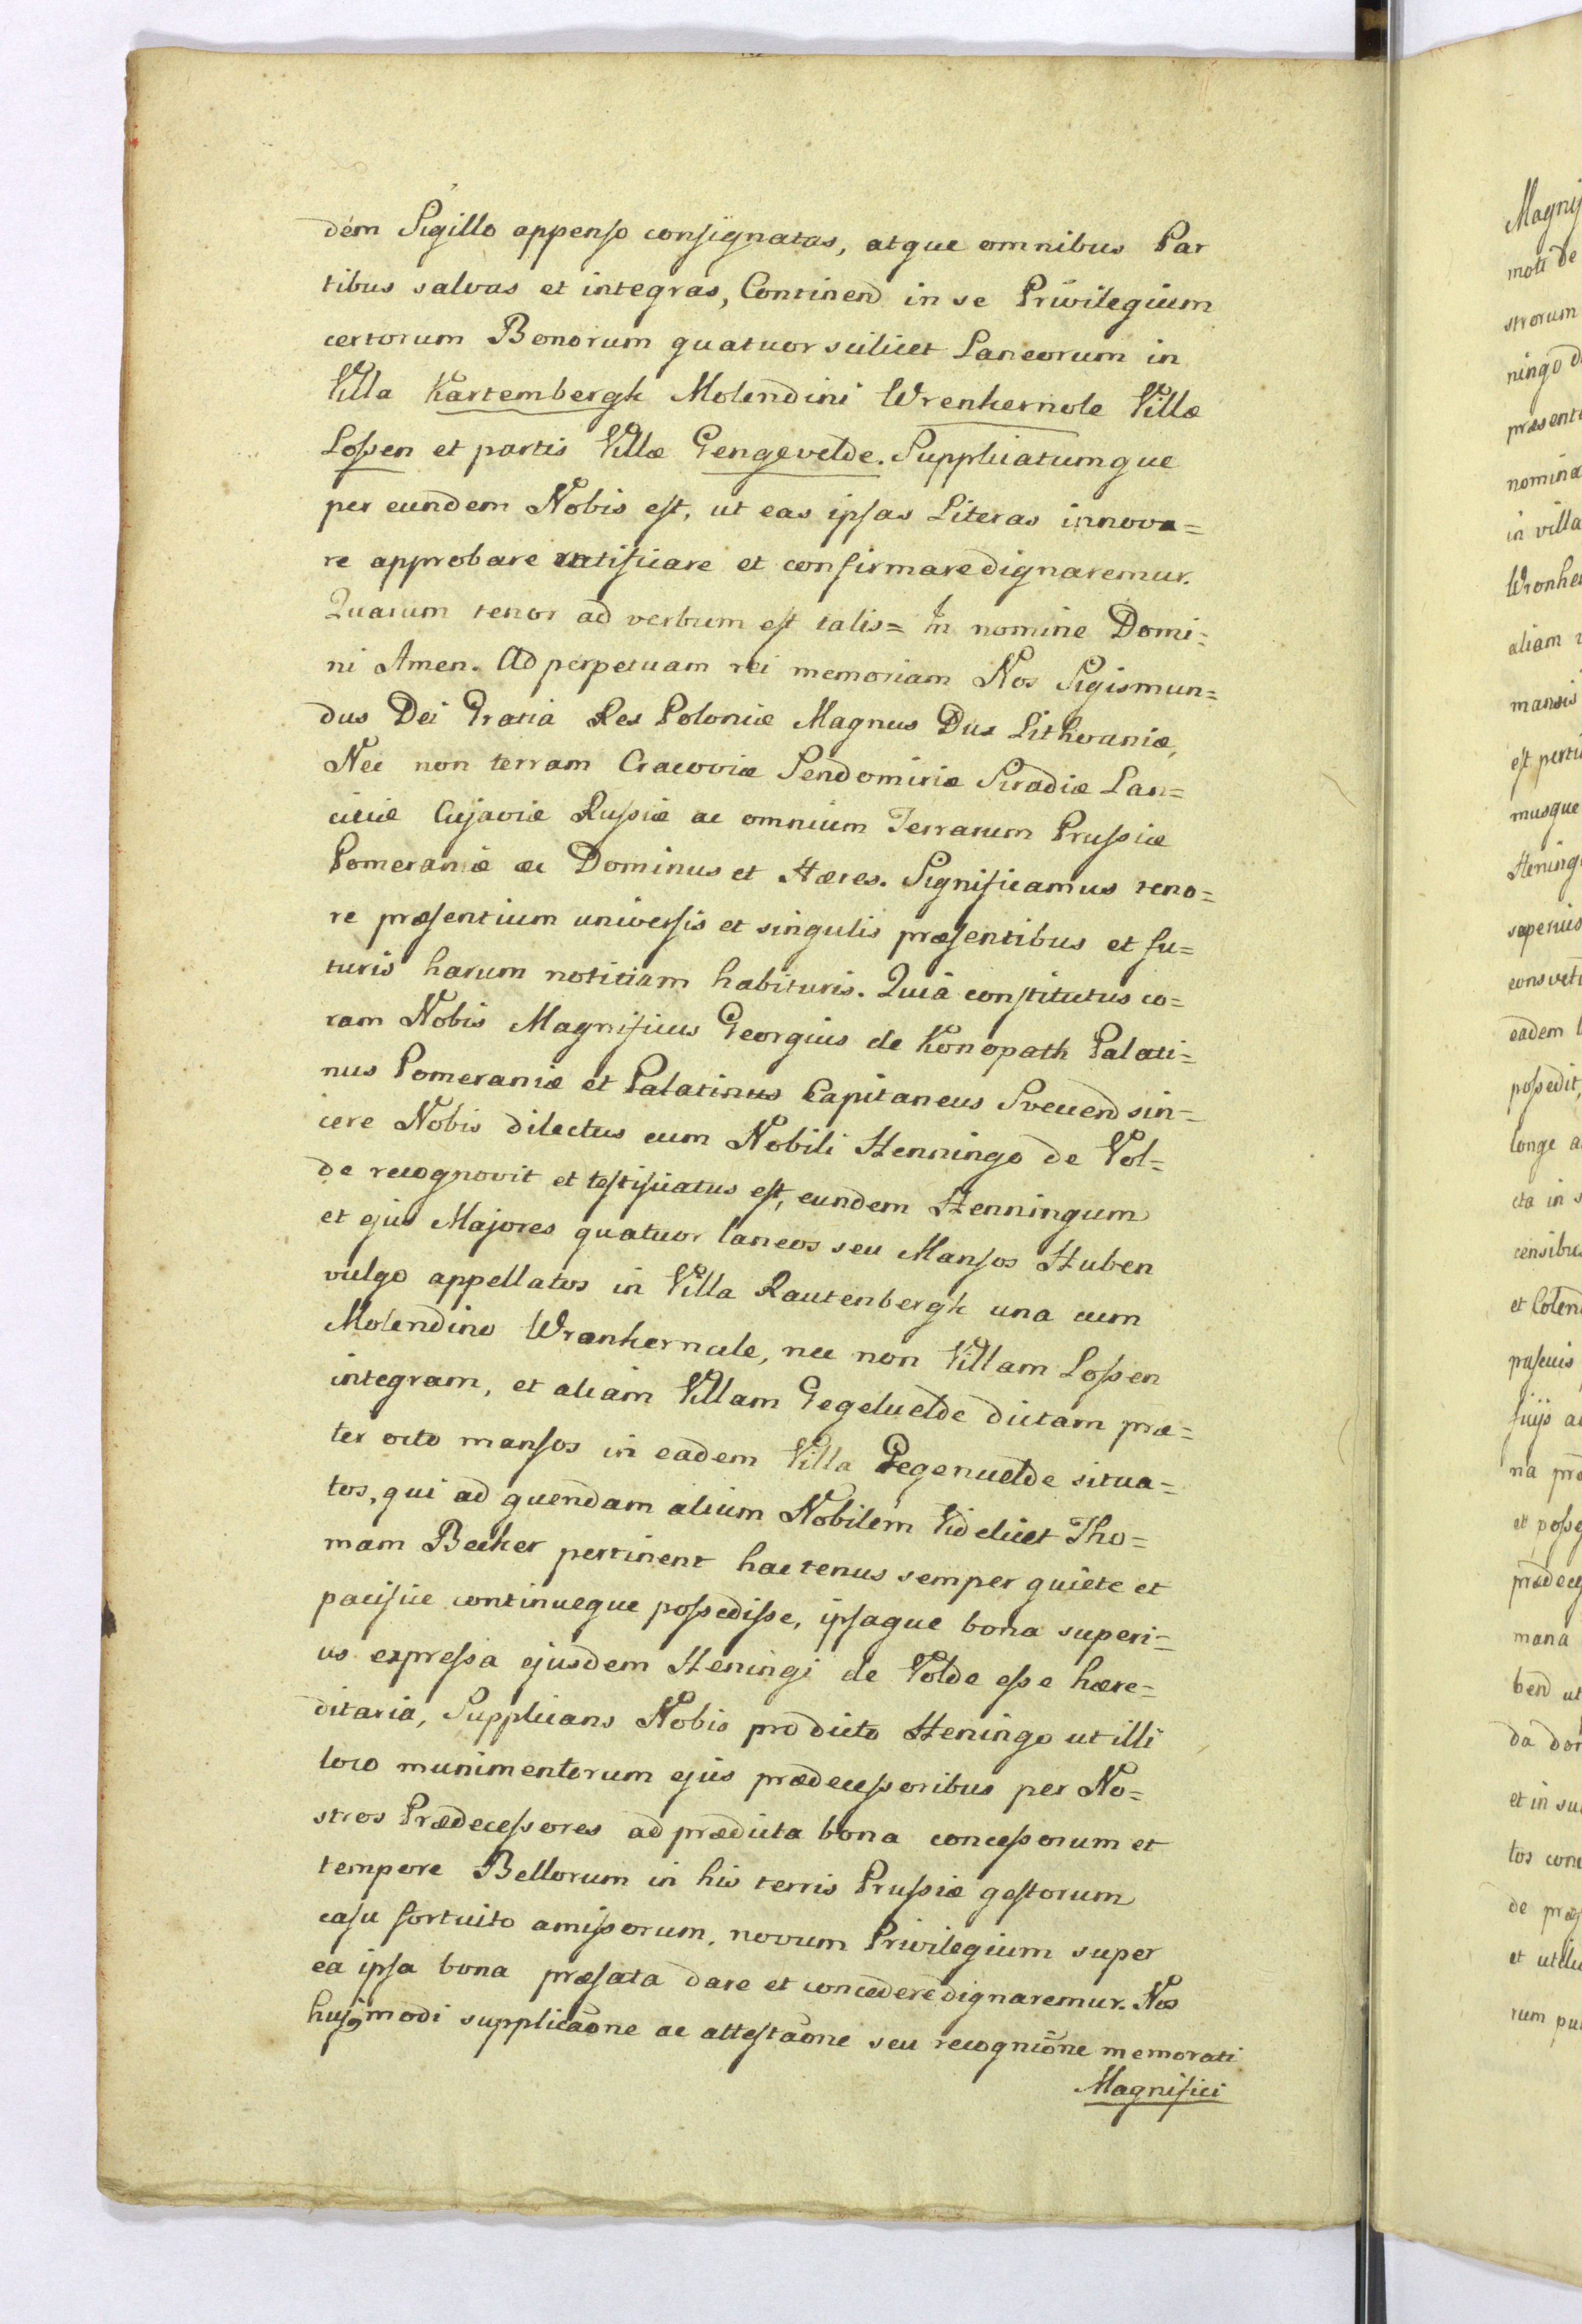 dem Sigillo appenso consignatas, atque omnibus Par
tibus salvas et integras, Continend in se Privilegium
certorum Bonorum quatuor scilicet Laneorum in
Villa Kartembergk Molendini Wrenkernole Villæ
Lossen et partis Villæ Gengevelde. Supplicatumque
per eundem Nobis est, ut eas ipsas Literas innova=
re approbare ratificare et confirmare dignaremur.
Quarum tenor ad verbum est talis= In nomine Domi=
ni Amen. Ad perpetuam rei memoriam Nos Sigismun=
dus Dei Gratia Rex Poloniæ Magnus Dux Lithvaniæ,
Nec non terram Cracoviæ Sendomiriæ Siradiæ Lan=
ciciæ Cujaviæ Russiæ ac omnium Terrarum Prussiæ
Pomeraniæ ac Dominus et Hæres. Significamus teno=
re præsentium universis et singulis præsentibus et fu=
turis harum notitiam habituris. Quia constitutus co=
ram Nobis Magnificus Georgius de Konopath Palati=
nus Pomeraniæ et Palatinus Capitaneus Svecend sin=
cere Nobis dilectus cum Nobili Henningo de Vol=
de recognovit et testificatus est, eundem Henningum
et ejus Majores quatuor laneos seu Mansos Huben
vulgo appellatos in Villa Rautenbergk una cum
Molendino Wrankernele, nec non Villam Lossen
integram, et aliam Villam Gegeluelde dictam præ=
ter octo mansos in eadem Villa Gegenuelde situa=
tos, qui ad quendam alium Nobilem Videlicet Tho=
mam Becker pertinent hactenus semper quiete et
pacifice continueque possedisse, ipsaque bona superi=
us expressa ejusdem Heningi de Volde esse hære=
ditaria, Supplicans Nobis pro dicto Heningo ut illi
loco munimentorum ejus prædecessoribus per No=
stros Prædecessores ad prædicta bona concessorum et
tempore Bellorum in his terris Prussiæ gestorum
casu fortuito amissorum, novum Privilegium super
ea ipsa bona præfata dare et concedere dignaremur. Nos
hujusmodi supplicaone ac attestaone seu recognione memorati
Magnifici
Magnif
moti de
strorum
ningo d
præsent
nomina
in villa
Wronhe
aliam
mansis
est perti
musque
Hening
superius
consvet
eadem
possedit,
longe a
cta in s
censibus
et Colen
pascuis
na
et posse
prædece
mana
bend ut
da
et in su
tos con
de præ
et utili
rum pu